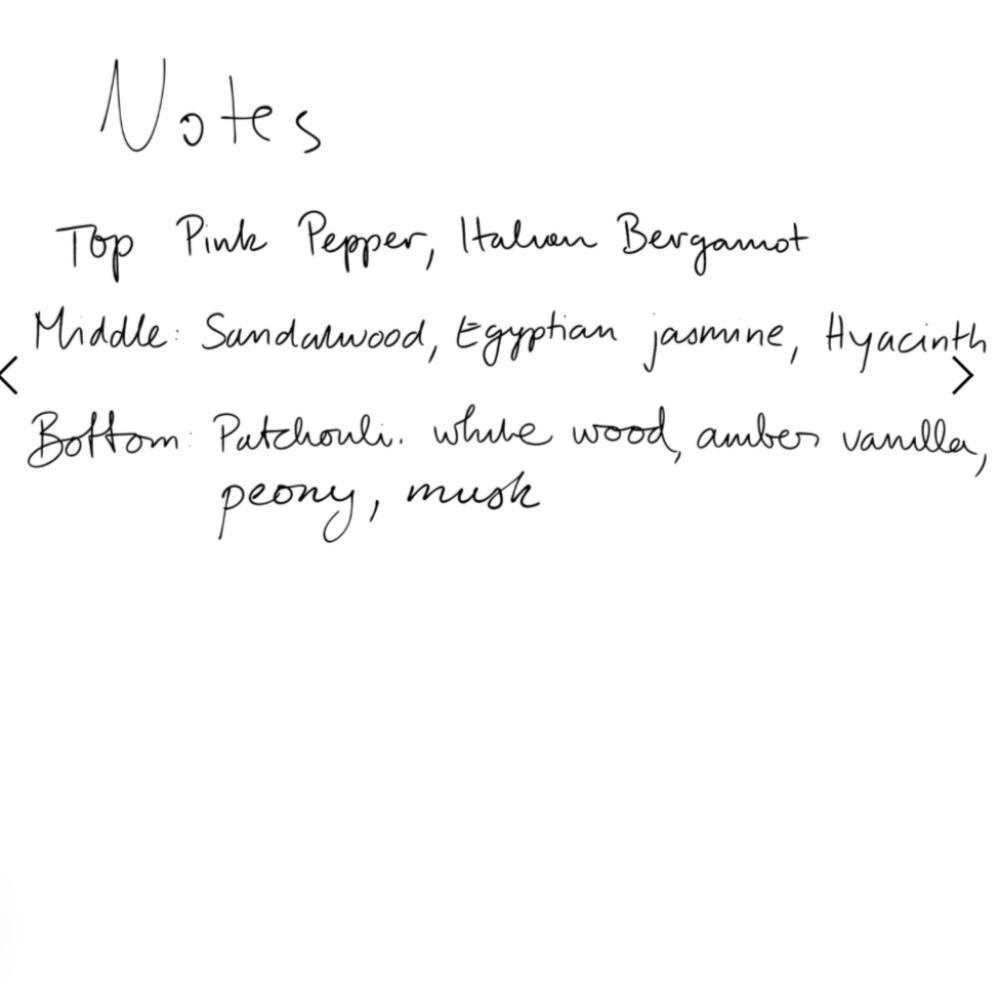 Notes
Top Pink Pepper, Italian Bergamot
Middle: Sandalwood, Egyptian jasmine, Hyacinth
Bottom: Patchouli. white wood, amber vanilla,
peony, musk